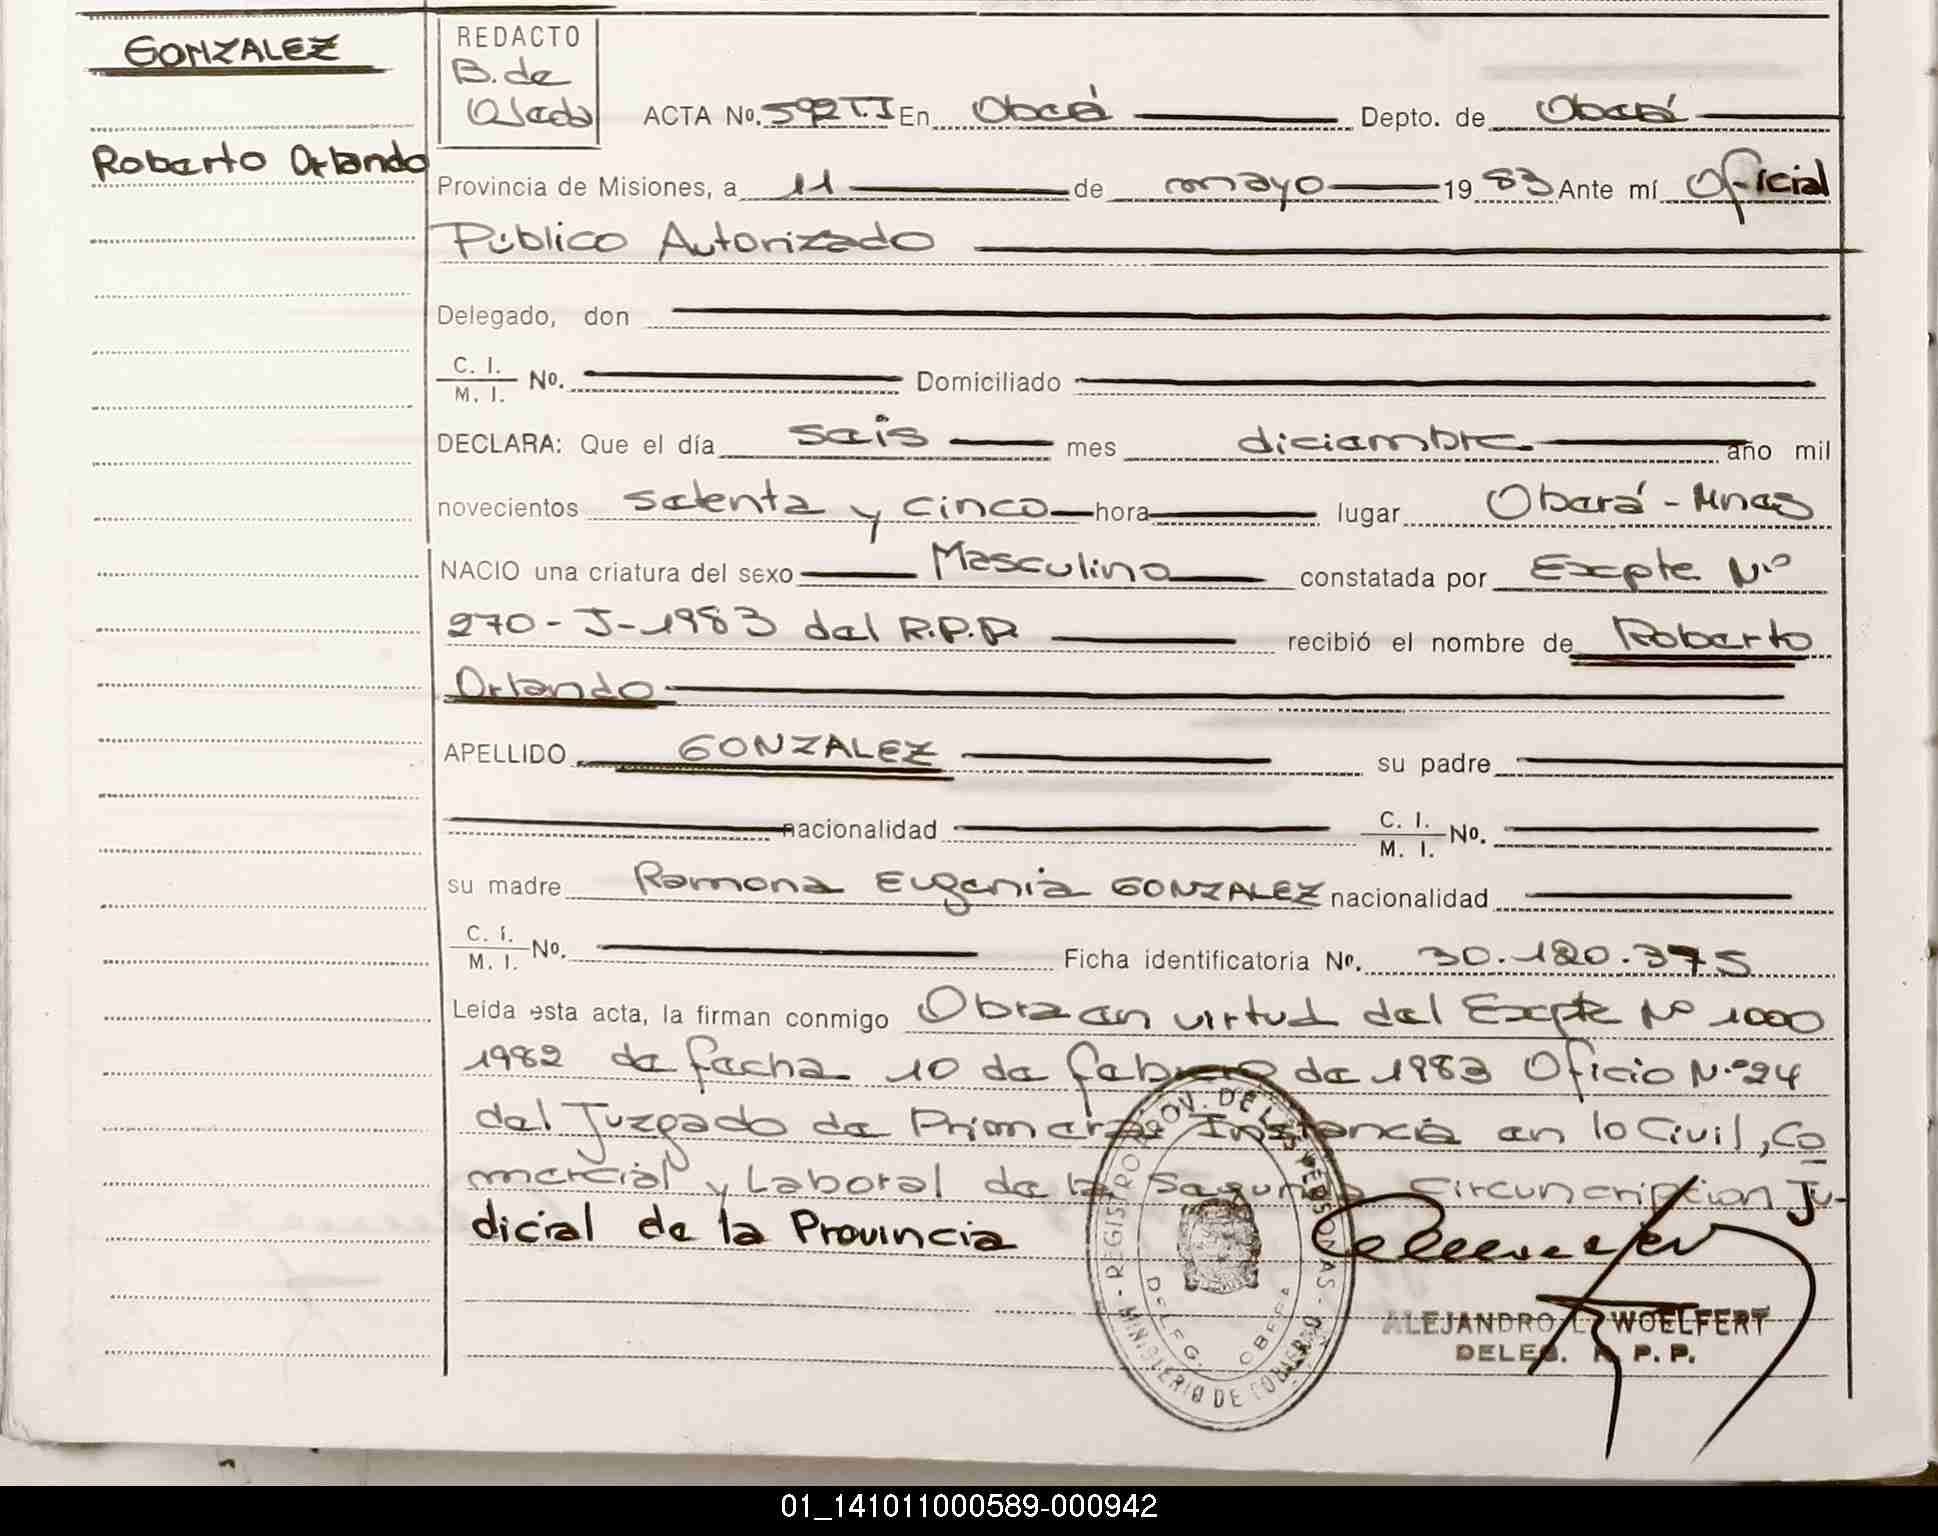 GONZALEZ
Roberto Orlando
REDACTO
B. de
Ojeda
ACTA No. 592 T.I En Oberá Depto. de Oberá
Provincia de Misiones, a 11 de mayo 1983 Ante mí Oficial
Público Autorizado
Delegado, don
C. I. / M. I. No. Domiciliado
DECLARA: Que el día seis mes diciembre año mil
novecientos setenta y cinco hora lugar Oberá - Mnes
NACIO una criatura del sexo Masculino constatada por Expte Nº
270-J-1983 del R.P.P. recibió el nombre de Roberto
Orlando
APELLIDO GONZALEZ su padre
nacionalidad C. I. / M. I. No.
su madre Ramona Eugenia GONZALEZ nacionalidad
C. I. / M. I. No. Ficha identificatoria No. 30.180.375
Leída esta acta, la firman conmigo Obra en virtud del Expte Nº 1000
1982 de fecha 10 de febrero de 1983 Oficio N.º 24
del Juzgado de Primera Instancia en lo Civil, Co
mercial y Laboral de la Segunda Circuncripcion Ju-
dicial de la Provincia
REGISTRO PROV. DE LAS PERSONAS - MINISTERIO DE GOBIERNO
DELEG. OBERA
ALEJANDRO L. WOELFERT
DELEG. R. P. P.
01_141011000589-000942